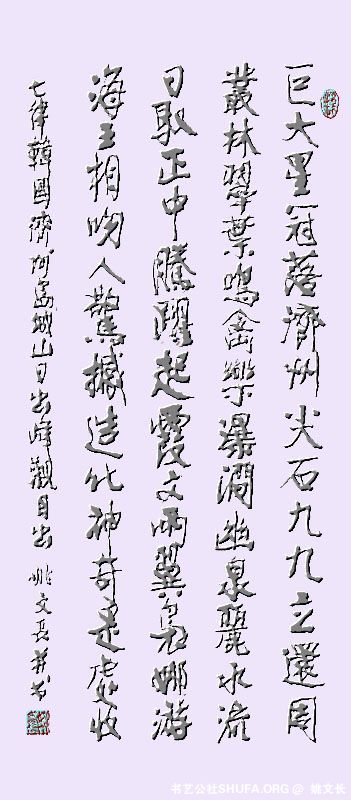 巨大星冠落濟州尖石九九立還周
叢林翠葉鳴禽樂瀑澗幽泉麗水流
日取正中騰躍起霞文兩翼裊娜游
海相吻人驚撼造化神奇是處收
七律韓國濟州島城山日出峰觀日出 姚文長并书
书艺公社SHUFA.ORG @ 姚文长